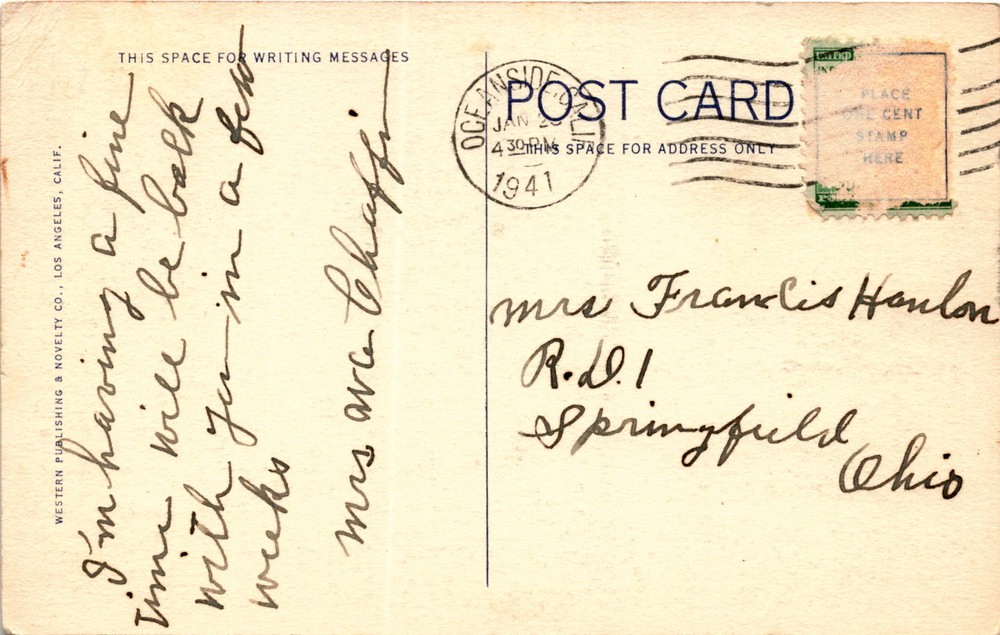 THIS SPACE FOR WRITING MESSAGES
POST CARD
THIS SPACE FOR ADDRESS ONLY
OCEANSIDE, CALIF.
JAN 2
4 30 PM
1941
PLACE
ONE CENT
STAMP
HERE
WESTERN PUBLISHING & NOVELTY CO., LOS ANGELES, CALIF.
I'm having a fine
time will be back
with you in a few
weeks
Mrs Chaffin
Mrs Francis Hanlon
R.D. 1
Springfield
Ohio